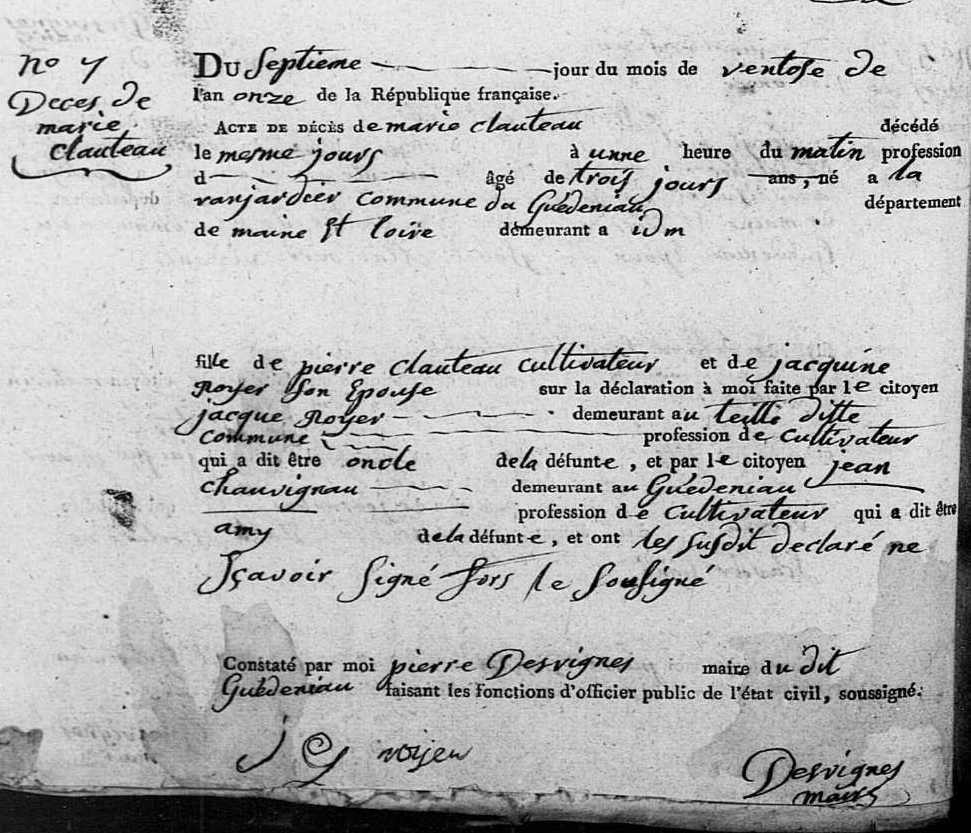 no 7
Deces de
marie
clauteau
DU Septieme jour du mois de ventose de
l'an onze de la République française.
ACTE DE DÉCÈS de marie clauteau décédé
le mesme jours à unne heure du matin profession
d âgé de trois jours ans, né a la
ranjardier commune du Guédeniau département
de maine Et loire démeurant a idm
fille de pierre clauteau cultivateur et de jacquine
Royer son Epouse sur la déclaration à moi faite par le citoyen
jacque Royer demeurant au teilli ditte
commune profession de cultivateur
qui a dit être oncle de la défunte, et par le citoyen jean
chauvignau demeurant au Guédeniau
profession de cultivateur qui a dit être
amy de la défunte, et ont les susdit declaré ne
sçavoir signé fors le sousigné
Constaté par moi pierre Desvignes maire du dit
Guédeniau faisant les fonctions d'officier public de l'état civil, soussigné.
j roijeu
Desvignes
maire